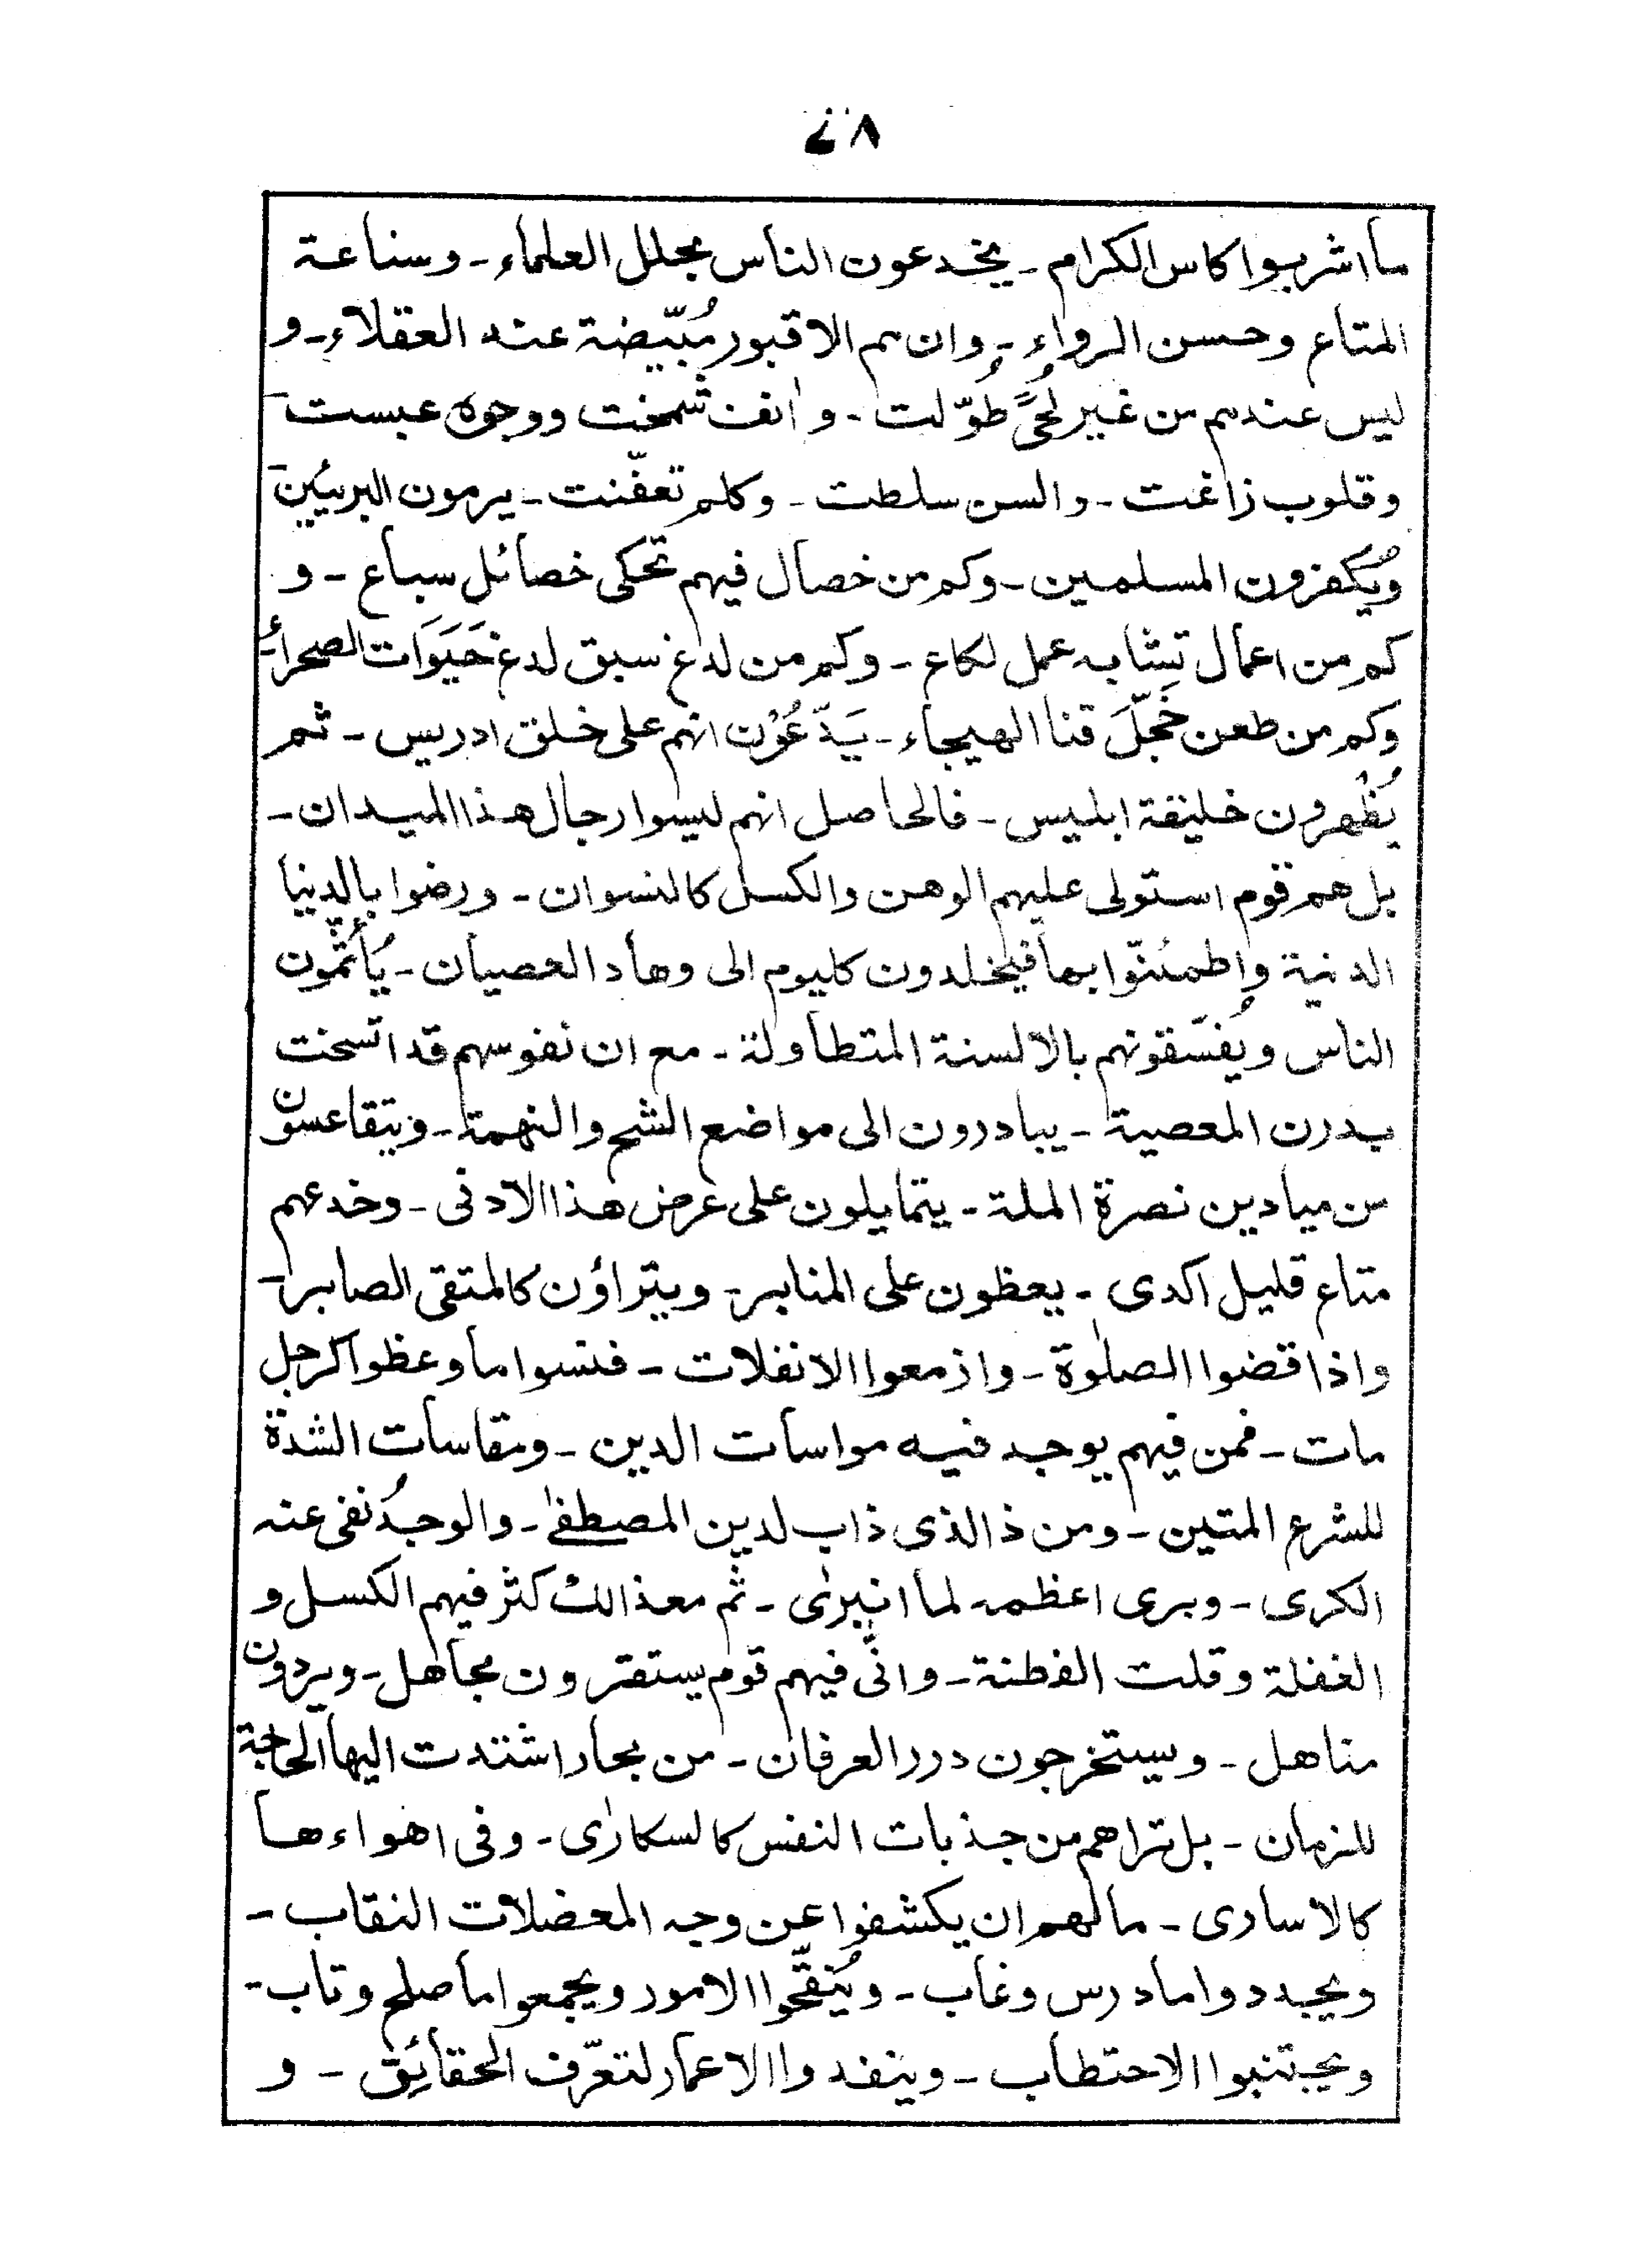 ۷۸
ما شربوا كاس الكرام ـ يخدعون الناس بحلل العلماء ـ وسناعة
المتاع وحسن الرواء ـ وان هم الا قبور مُبيّضة عند العقلاء ـ و
ليس عندهم من غير لُحًى طُوّلت ـ وانف شمخت ووجوه عبست ـ
وقلوب زاغت ـ والسن سلطت ـ وكلم تعفّنت ـ يرمون البريئين ـ
ويُكفرون المسلمين ـ وكم من خصال فيهم تحكى خصائل سباع ـ و
كم من اعمال تشابه عمل لكاع ـ وكم من لدغ سبق لدغ حَيَوَات الصحراء ـ
وكم من طعن خَجّلَ قنا الهيجاء ـ يَدّعُوْن انهم على خلق ادريس ـ ثم
يُظهرون خليقة ابليس ـ فالحاصل انهم ليسوا رجال هذا الميدان ـ
بل هم قوم استولى عليهم الوهن والكسل كالنسوان ـ ورضوا بالدنيا
الدنية واطمئنّوا بها فيخلدون كليوم الى وهاد العصيان ـ يُأثّمون
الناس ويُفسّقونهم بالالسنة المتطاولة ـ مع ان نفوسهم قد اتسخت
بدرن المعصية ـ يبادرون الى مواضع الشح والنهمة ـ ويتقاعسون
من ميادين نصرة الملة ـ يتمايلون على عرض هذا الادنى ـ وخدعهم
متاع قليل اكدى ـ يعظون على المنابر ـ ويتراؤن كالمتقى الصابر ـ
واذا قضوا الصلٰوة ـ وازمعوا الانفلات ـ فنسوا ما وعظوا كرجل
مات ـ فمن فيهم يوجد فيه مواسات الدين ـ ومقاسات الشدّة
للشرع المتين ـ ومن ذا الذى ذاب لدين المصطفٰى ـ والوجدُ نفى عنه
الكرى ـ وبرى اعظمه لما انبرٰى ـ ثم معذالك كثر فيهم الكسل و
الغفلة وقلت الفطنة ـ وانّى فيهم قوم يستقرون مجاهل ـ ويردون
مناهل ـ ويستخرجون درر العرفان ـ من بحار اشتدت اليها الحاجة
للزمان ـ بل تراهم من جذبات النفس كالسكارٰى ـ وفى اهواءها
كالاسارى ـ ما لهم ان يكشفوا عن وجه المعضلات النقاب ـ
ويجددوا ما درس وغاب ـ ويُنقّحوا الامور ويجمعوا ما صلح وتاب ـ
ويجتنبوا الاحتطاب ـ وينفدوا الاعمار لتعرّف الحقائق ـ و